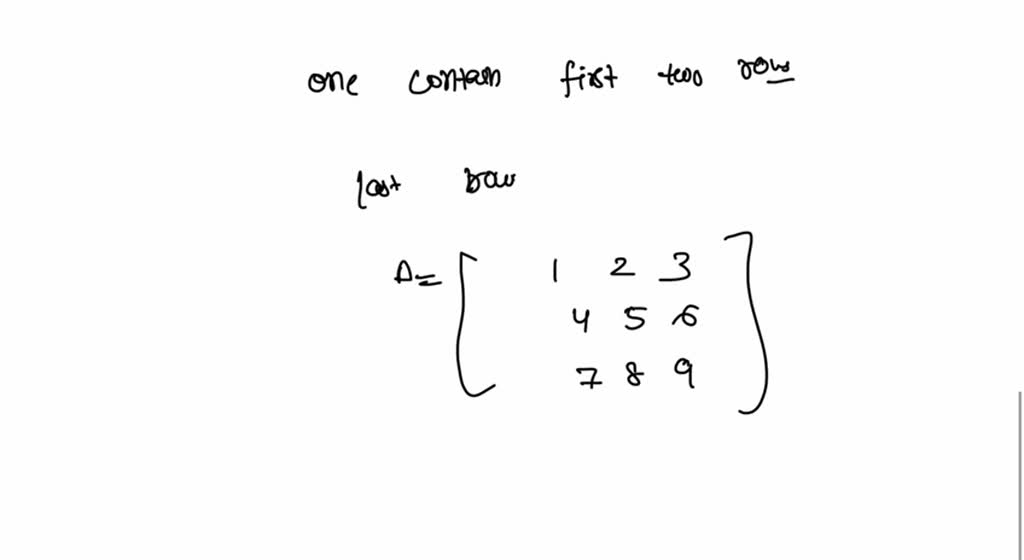 one contain first two row
last row
A = [ 1 2 3
4 5 6
7 8 9 ]